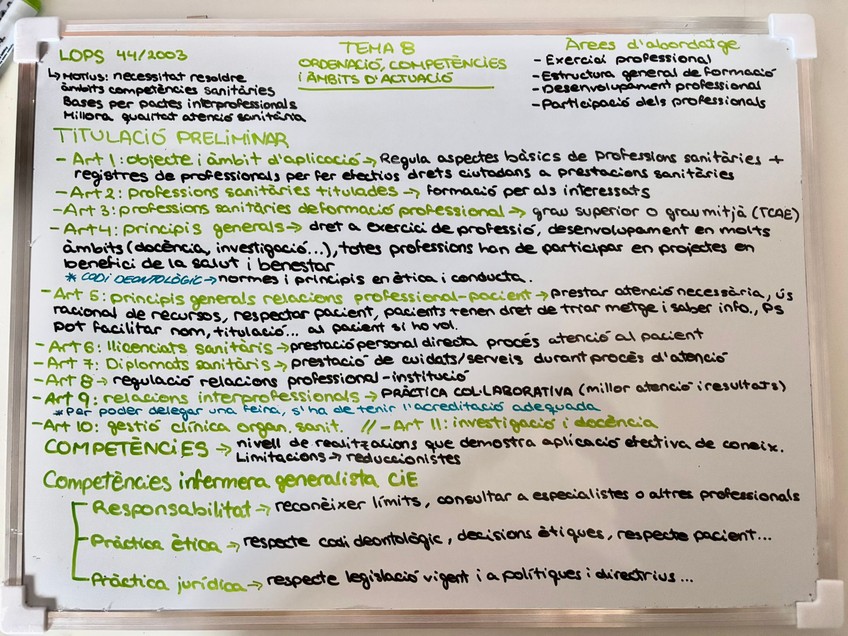 LOPS 44/2003
↳ Motius: necessitat resoldre
àmbits competències sanitàries
Bases per pactes interprofessionals
Millora qualitat atenció sanitària
TEMA 8
ORDENACIÓ, COMPETÈNCIES
I ÀMBITS D'ACTUACIÓ
Àrees d'abordatge
- Exercici professional
- Estructura general de formació
- Desenvolupament professional
- Participació dels professionals
TITULACIÓ PRELIMINAR
- Art 1: objecte i àmbit d'aplicació → Regula aspectes bàsics de professions sanitàries +
registres de professionals per fer efectius drets ciutadans a prestacions sanitàries
- Art 2: professions sanitàries titulades → formació per als interessats
- Art 3: professions sanitàries de formació professional → grau superior o grau mitjà (TCAE)
- Art 4: principis generals → dret a exercici de professió, desenvolupament en molts
àmbits (docència, investigació...), totes professions han de participar en projectes en
benefici de la salut i benestar
* CODI DEONTOLÒGIC → normes i principis en ètica i conducta.
- Art 5: principis generals relacions professional-pacient → prestar atenció necessària, ús
racional de recursos, respectar pacient, pacients tenen dret de triar metge i saber info., PS
pot facilitar nom, titulació... al pacient si ho vol.
- Art 6: llicenciats sanitaris → prestació personal directa procés atenció al pacient
- Art 7: Diplomats sanitaris → prestació de cuidats/serveis durant procés d'atenció
- Art 8 → regulació relacions professional-institució
- Art 9: relacions interprofessionals → PRÀCTICA COL·LABORATIVA (millor atenció i resultats)
* Per poder delegar una feina, s'ha de tenir l'acreditació adequada
- Art 10: gestió clínica organ. sanit. // - Art 11: investigació i docència
COMPETÈNCIES → nivell de realitzacions que demostra aplicació efectiva de coneix.
Limitacions → reduccionistes
Competències infermera generalista CIE
Responsabilitat → reconèixer límits, consultar a especialistes o altres professionals
- Pràctica ètica → respecte codi deontològic, decisions ètiques, respecte pacient...
Pràctica jurídica → respecte legislació vigent i a polítiques i directrius...